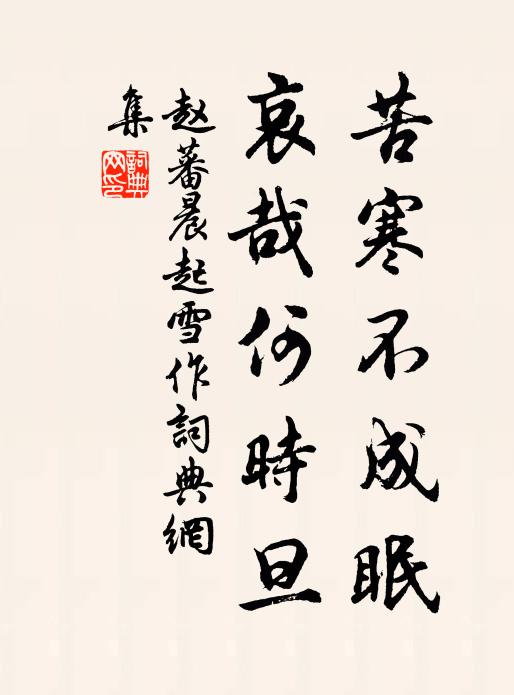 苦寒不成眠
哀哉何時旦
赵蕃晨起雪作詞典網
集
詞典
网印